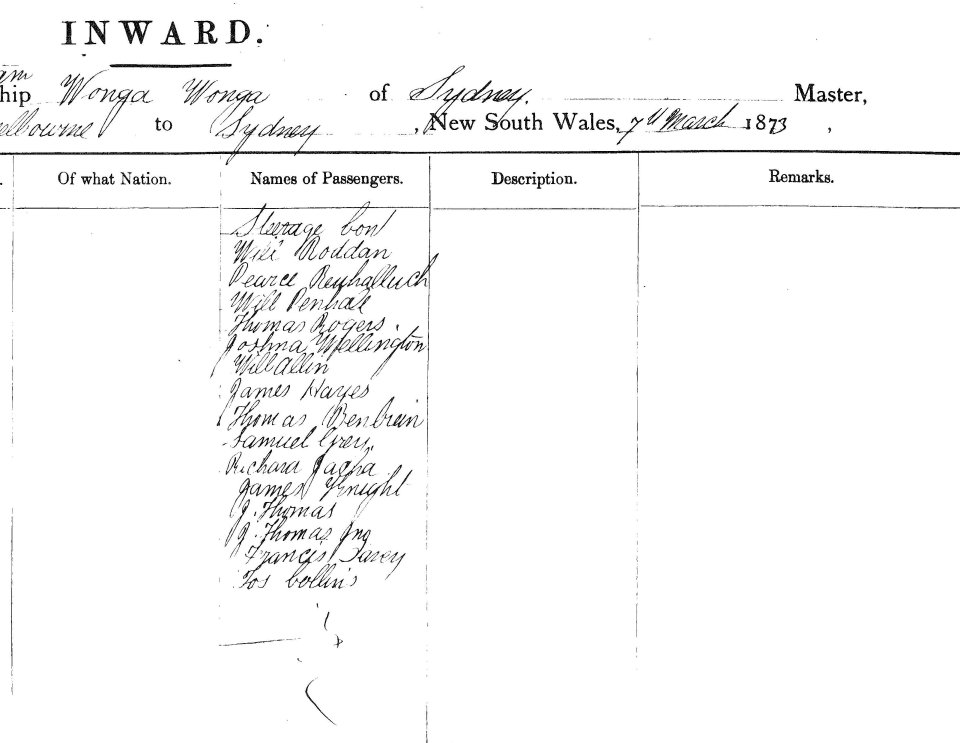 INWARD.
hip Wonga Wonga of Sydney. Master,
elbourne to Sydney, New South Wales, 7th March 1873,
Of what Nation. Names of Passengers. Description. Remarks.
Steerage Con
Will Roddan
Pearce Renhalluch
Will Penhale
Thomas Rogers.
Joshua Wellington
Will Allin
James Hayes
Thomas
Samuel Grey
Richard
James Knight
J. Thomas
J. Thomas Jno
Francis
Jos Collins